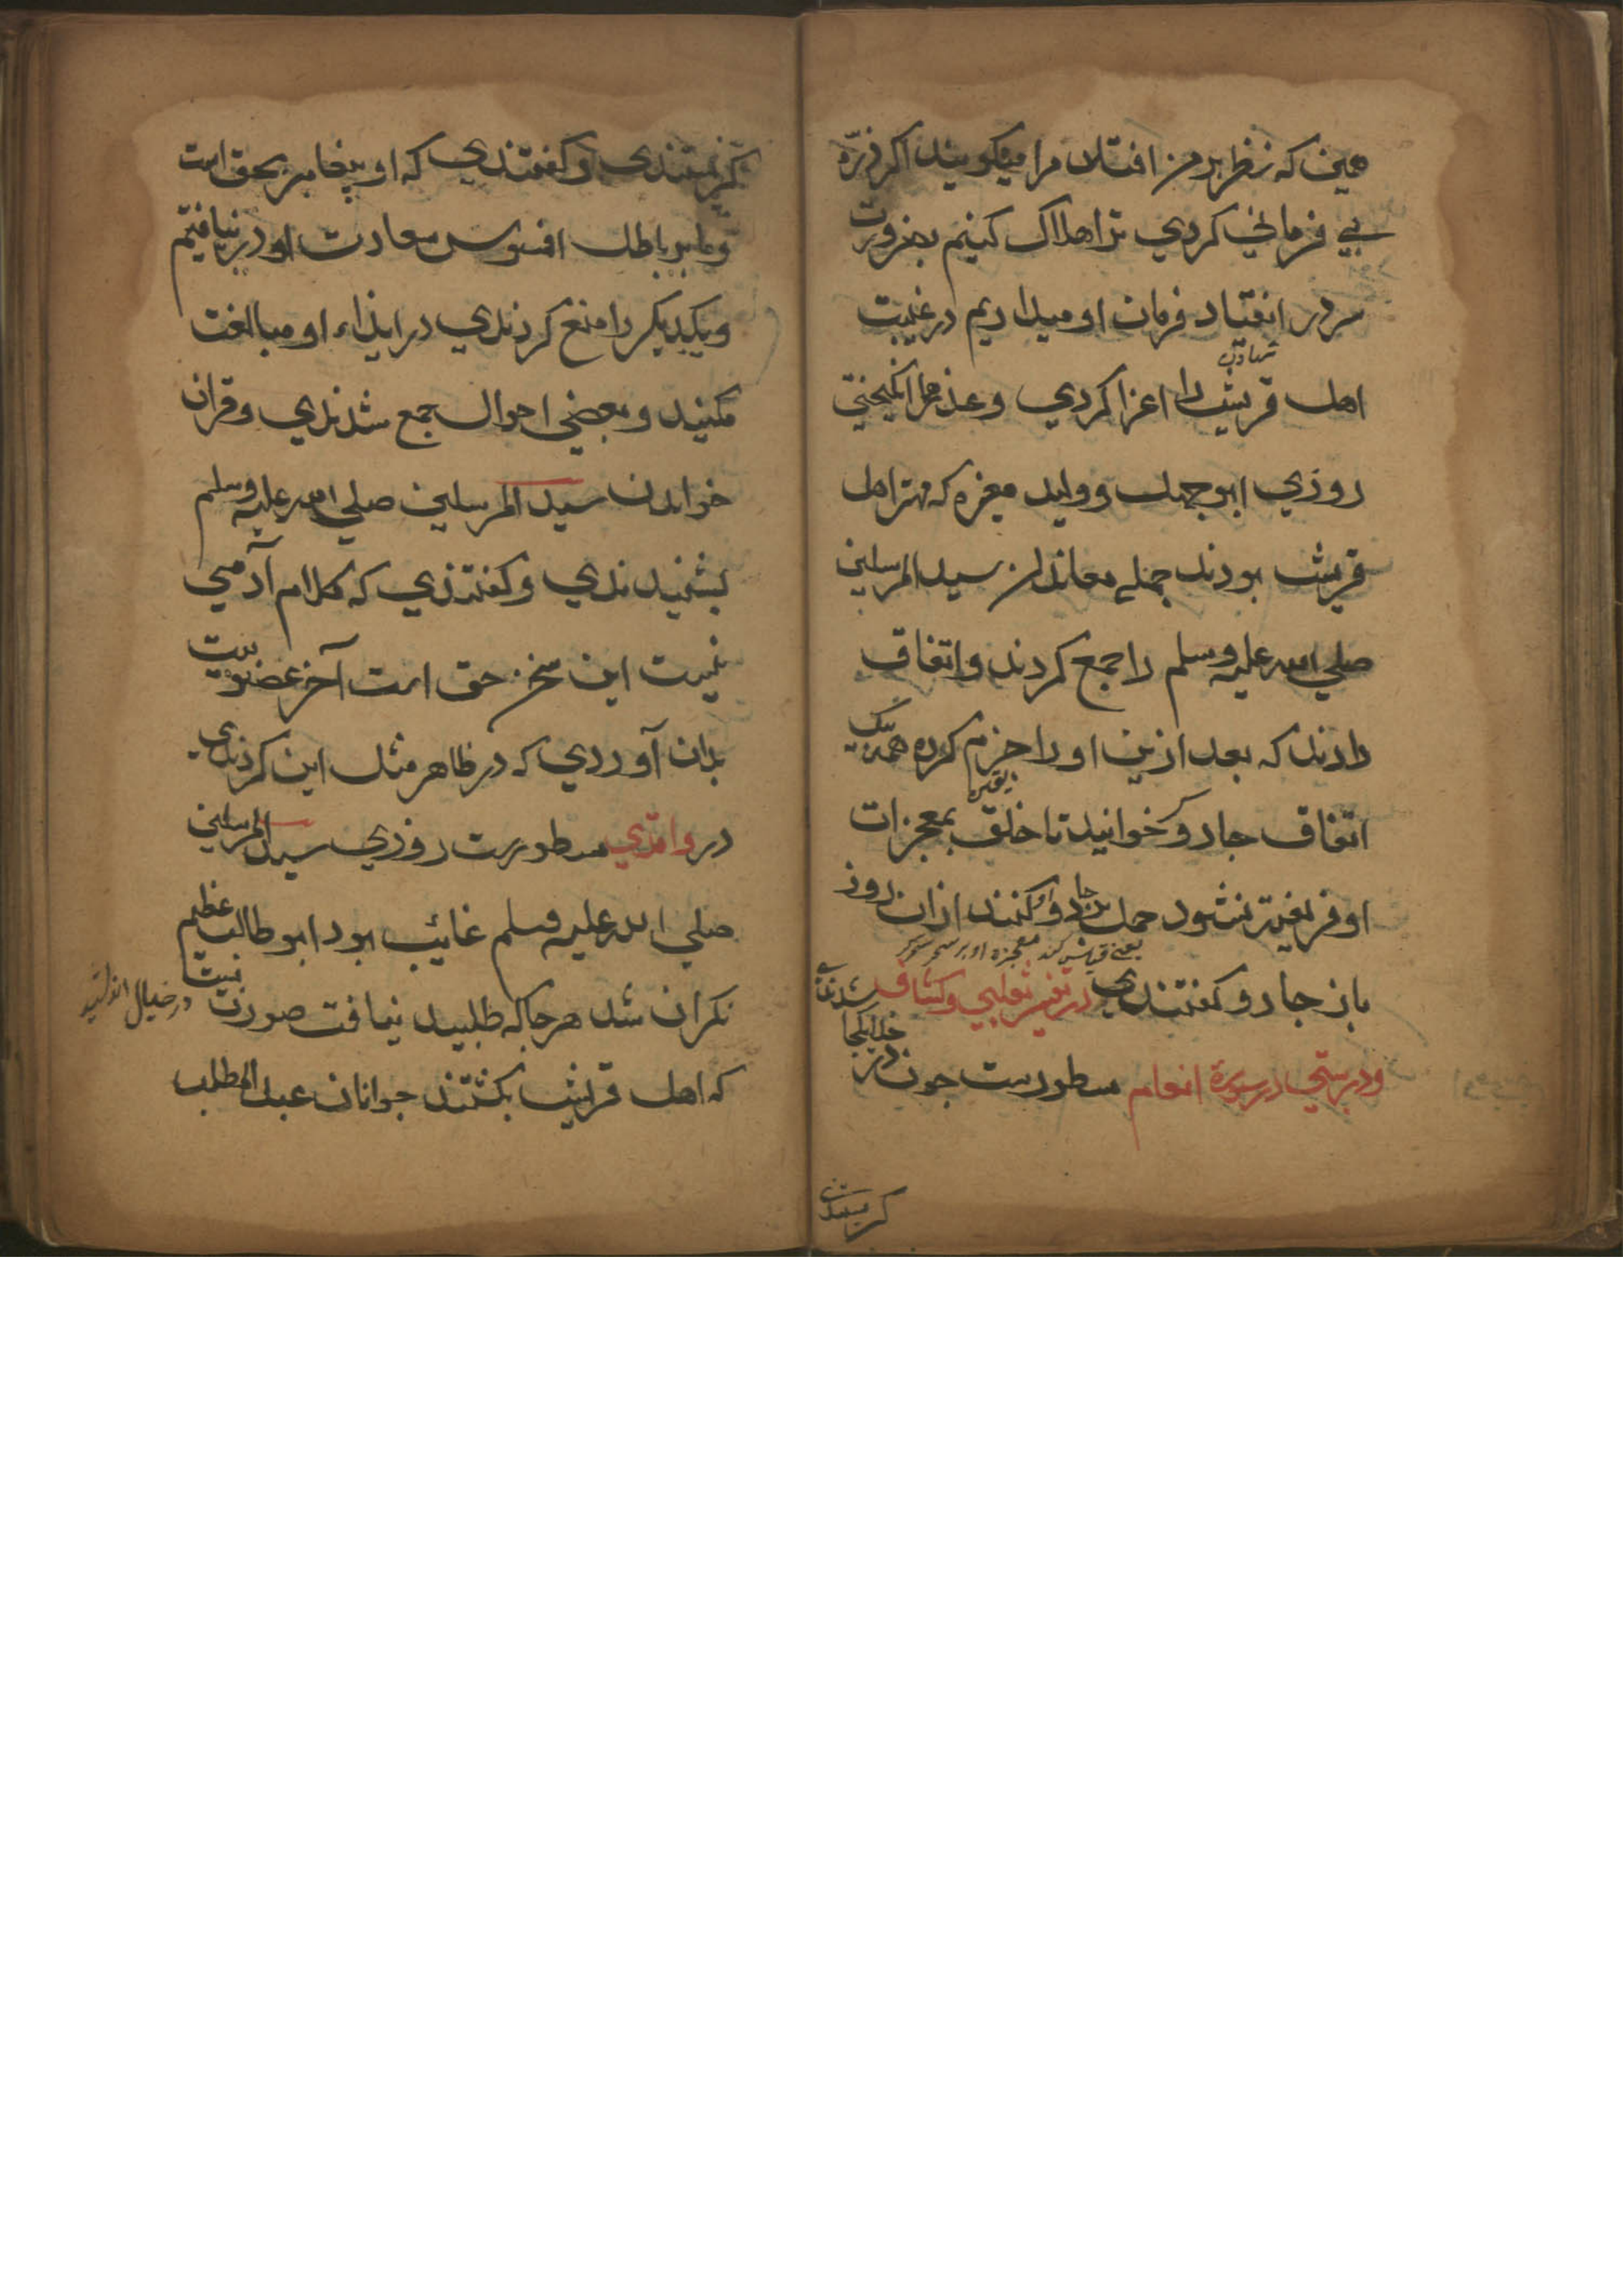 همین که نظر بر من افتد مرا میکویند اکر ذره
بی فرمانی کردی ترا هلاک کنیم بضرورت
سر در انقیاد فرمان او میداریم در غیبت
اهل قریش را اغرا کردی و عذرها انکیختی
روزی ابوجهل و ولید مغیره که مهتر اهل
قریش بودند جمله معاندان سید المرسلین
صلی الله علیه وسلم را جمع کردند و اتفاق
دادند که بعد ازین او را جزم کرده همه بیک
یقین
اتفاق جادو خوانید تا خلق بمعجزات
او فریفته نشود حمل بر جادو کنند ازان روز
یعنی قیاس کند معجزه او بر سحر
باز جادو کفتندی در تفسیر ثعلبی و کشاف
ودرستی در سورة انعام مسطورست چون
تکریستندی و کفتندی که او پیغامبر بحق است
و ما بر باطل افسوس سعادت او در نیافتیم
ویکدیکر را منع کردندی در ایذاء او مبالغت
مکنید و بعضی احوال جمع شدندی و قران
خواندن سید المرسلین صلی الله علیه وسلم
بشنیدندی و کفتندی که کلام آدمی
نیست این سخن حق است آخر عضویت
بدان آوردی که در ظاهر مثل این کردندی
در واقدی مسطورست روزی سید المرسلین
صلی الله علیه وسلم غائب بود ابو طالب عظیم
نکران شد هرجا که طلبید نیافت صورت بست
در خیال
که اهل قریش بکشتند جوانان عبد المطلب